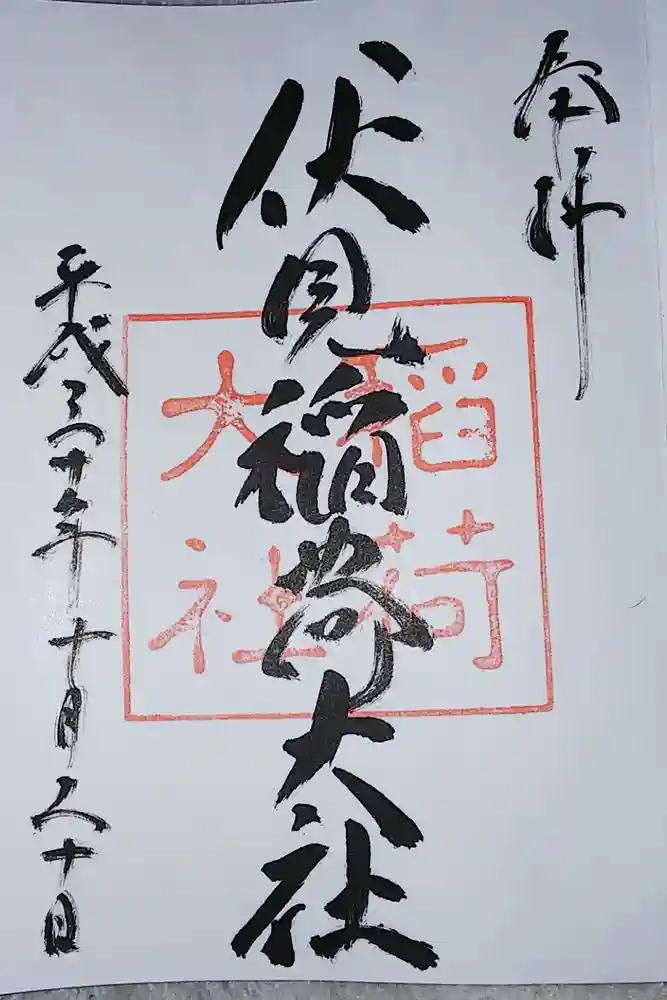 奉拝
伏見稲荷大社
稲荷
大社
平成三十年十月二十日